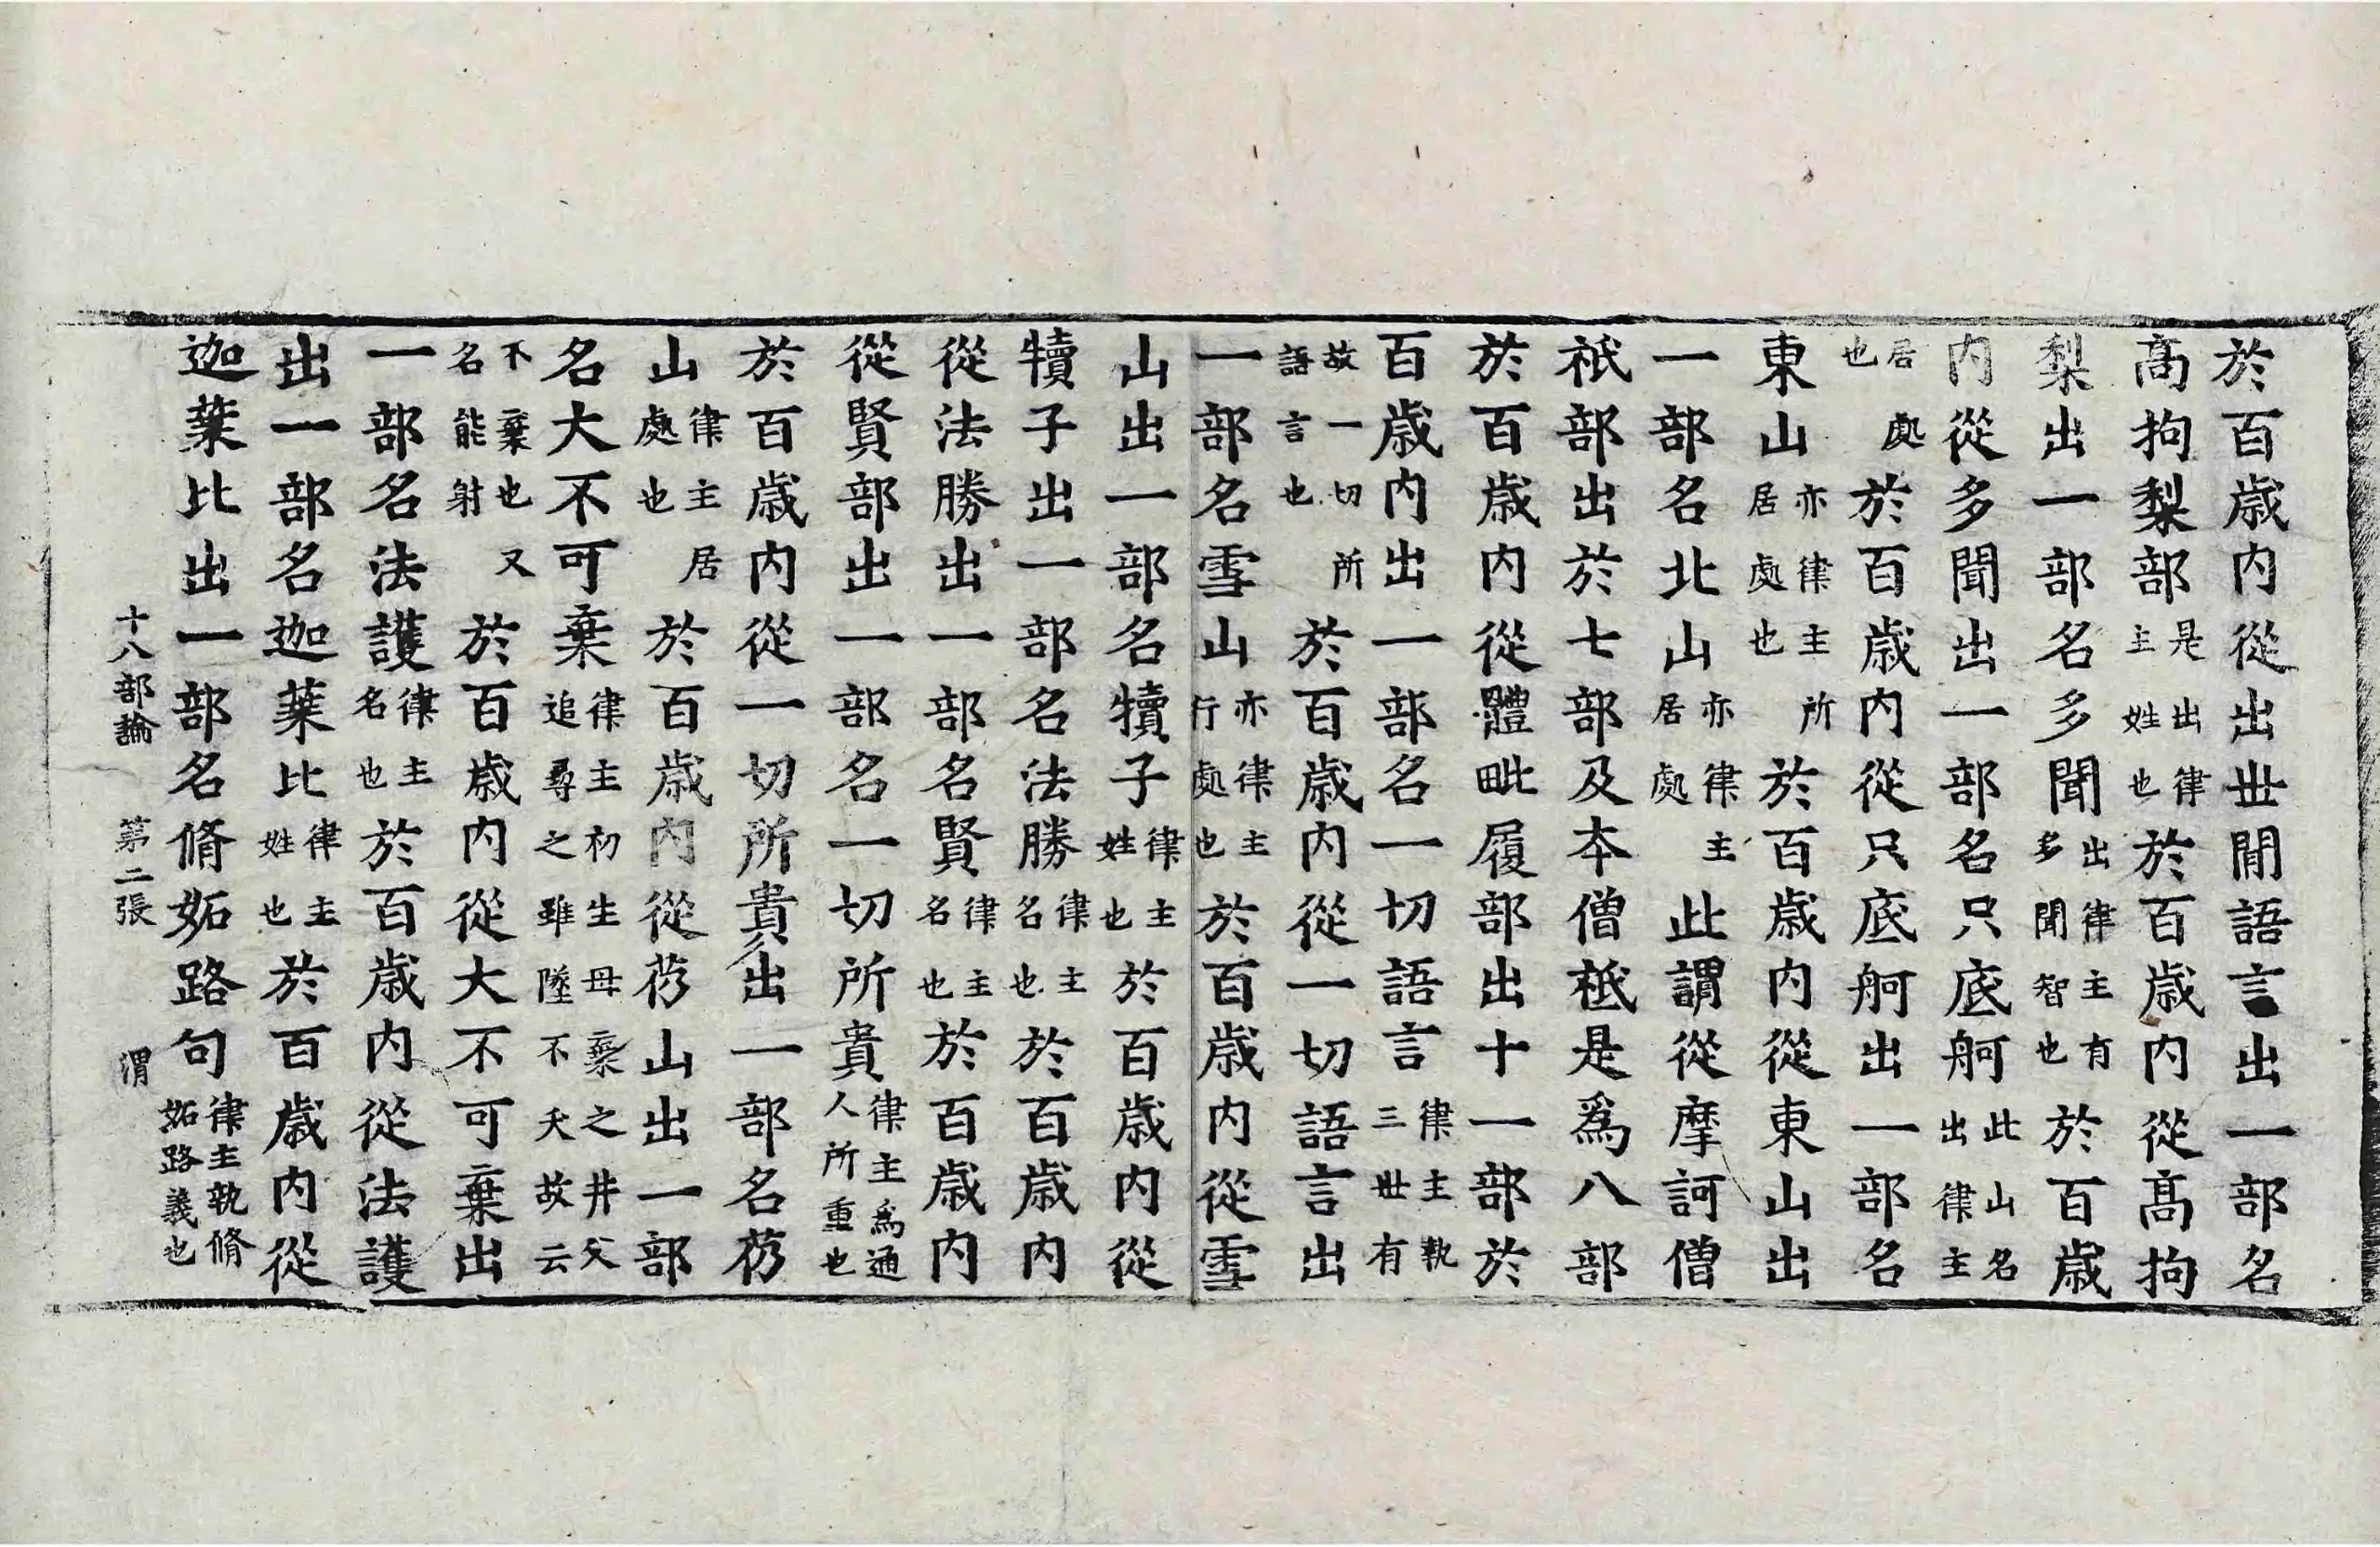 於百歲内從出世間語言出一部名
高拘梨部是出律主姓也於百歲内從高拘
梨出一部名多聞出律主有多聞智也於百歲
内從多聞出一部名只底舸此山名出律主
居處也於百歲内從只底舸出一部名
東山亦律主所居處也於百歲内從東山出
一部名北山亦律主居處此謂從摩訶僧
祇部出於七部及本僧祇是爲八部
於百歲内從體毗履部出十一部於
百歲内出一部名一切語言律主執三世有
故一切所語言也於百歲内從一切語言出
一部名雪山亦律主行處也於百歲内從雪
山出一部名犢子律主姓也於百歲内從
犢子出一部名法勝律主名也於百歲内
從法勝出一部名賢律主名也於百歲内
從賢部出一部名一切所貴律主爲通人所重也
於百歲内從一切所貴出一部名芿
山律主居處也於百歲内從芿山出一部
名大不可棄律主初生母棄之井父追尋之雖墜不夭故云
不棄也又名能射於百歲内從大不可棄出
一部名法護律主名也於百歲内從法護
出一部名迦葉比律主姓也於百歲内從
迦葉比出一部名脩妬路句律主執脩妬路義也
十八部論 第二張 渭